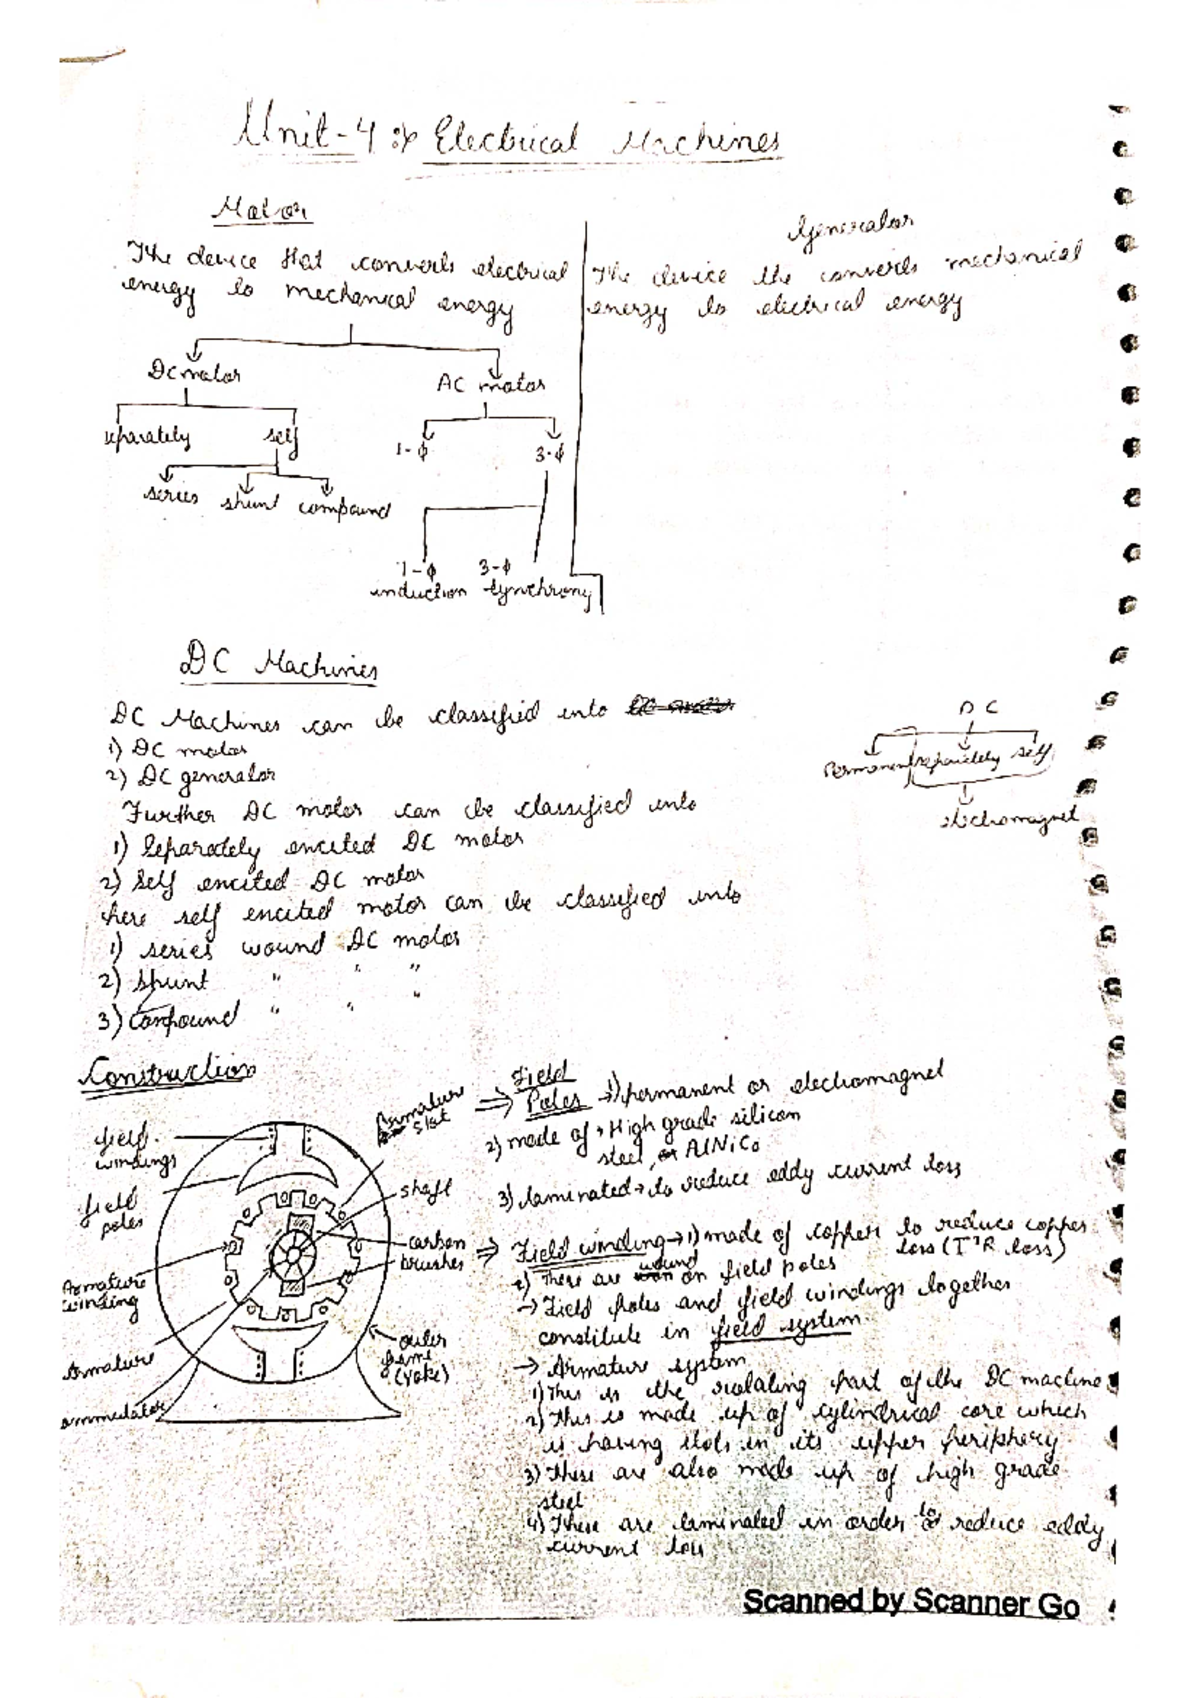 Unit-4 :→ Electrical Machines
Motor
The device that converts electrical
energy to mechanical energy
Generator
The device the converts mechanical
energy to electrical energy
DC motor
AC motor
separately
self
1-ϕ
3-ϕ
series shunt compound
1-ϕ
induction
3-ϕ
synchrony
DC Machines
DC Machines can be classified into
1) DC motor
2) DC generator
Further DC motor can be classified into
1) Separately encited DC motor
2) Self encited DC motor
here self encited motor can be classified into
1) series wound DC motor
2) shunt " " "
3) compound " " "
DC
Permanent separately self
electromagnet
Construction
field
windings
field
poles
Armature
winding
Armature
ommutator
Armature
slot
shaft
carbon
brushes
outer
(yoke)
⇒ Field
Poles → 1) permanent or electromagnet
2) made of → High grade silicon
steel, or AlNiCo
3) laminated → to reduce eddy current loss
⇒ Field winding → 1) made of copper to reduce copper
loss (I²R loss)
2) There are wound on field poles
→ Field poles and field windings together
constitute in field system.
→ Armature system
1) This is the rotating part of the DC machine
2) This is made up of cylindrical core which
is having slots in its upper periphery
3) These are also made up of high grade
steel
4) These are laminated in order to reduce eddy
current loss
Scanned by Scanner Go